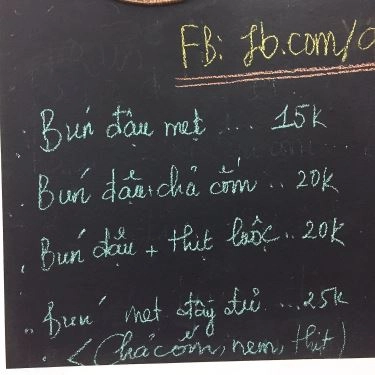 FB: fb.com/
Bún đậu mẹt .... 15k
Bún đậu + chả cốm .. 20k
Bún đậu + thịt luộc .. 20k
Bún mẹt đầy đủ .... 25k
(Chả cốm, nem, thịt)